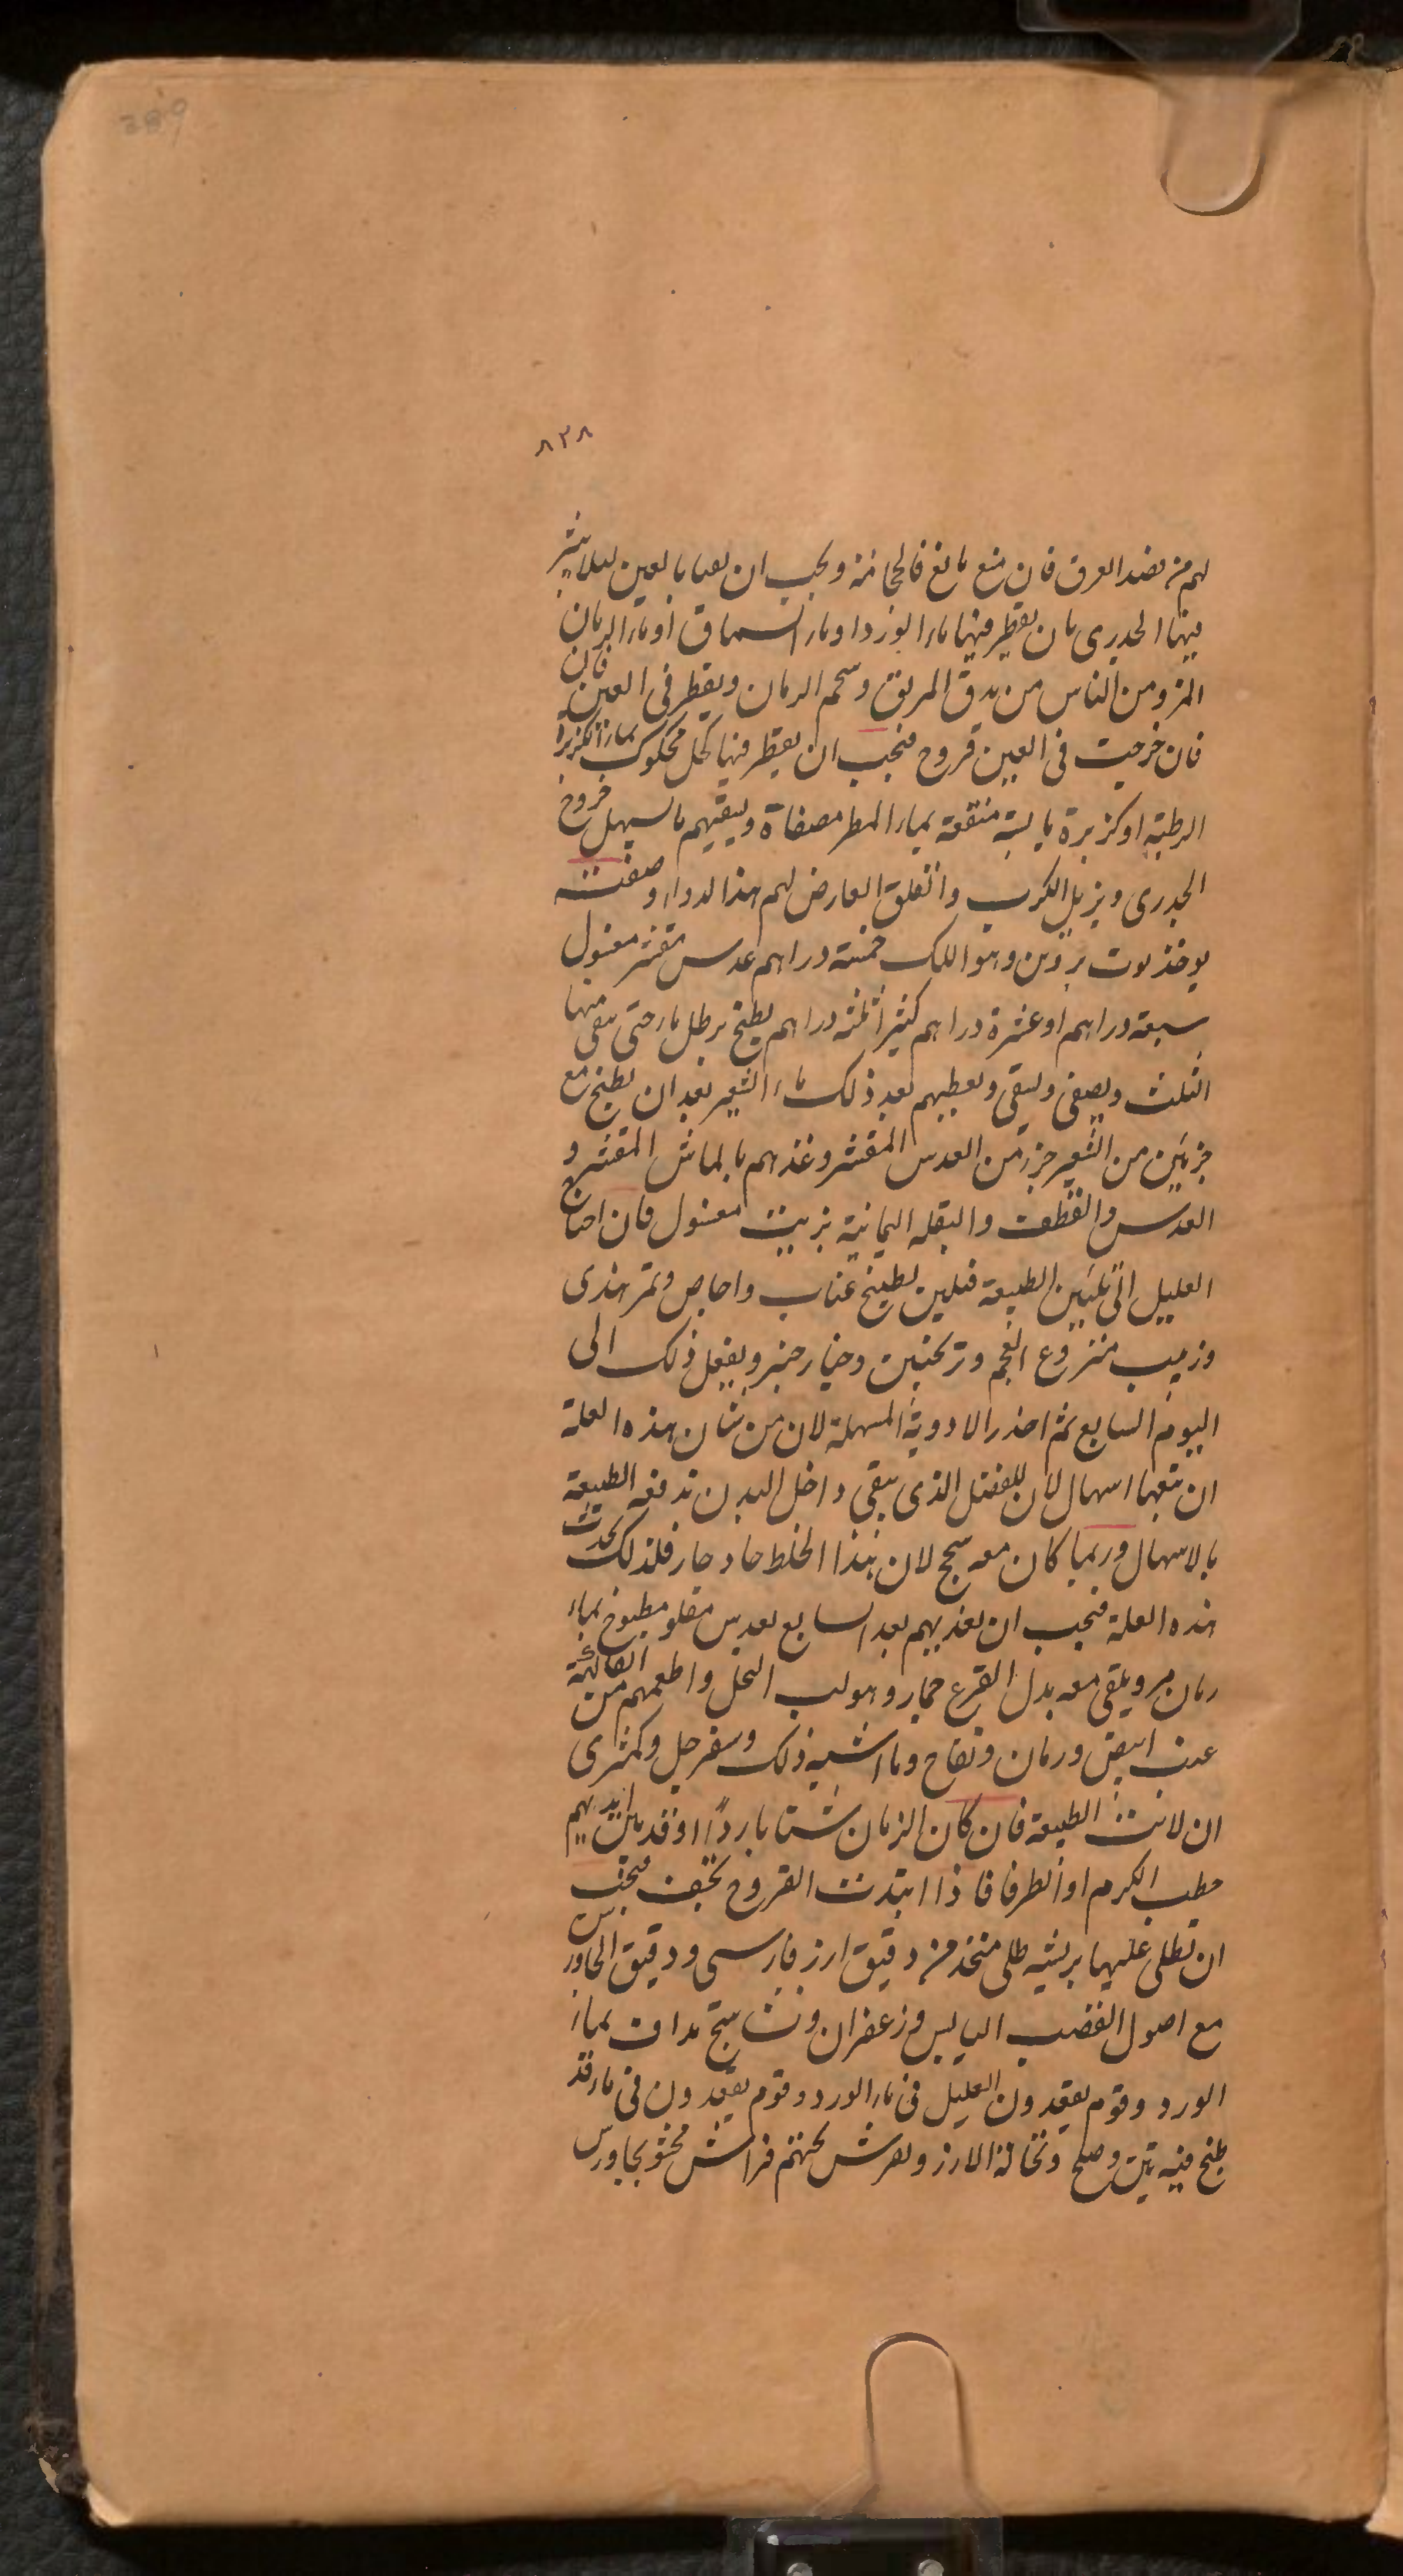 389
٨٢٨
لهم من فصد العرق فان منع مانع فالحجامة ويجب ان يعنا بالعين ليلا يبثر
فيها الجدرى بان يقطر فيها ماء الورد او ماء السماق او ماء الرمان
المز ومن الناس من يدق المريق وشحم الرمان ويقطر فى العين فان
فان خرجت فى العين قروح فيجب ان يقطر فيها كحل محكوك بماء الكزبرة
الرطبة او كزبرة يابسة منقعة بماء المطر مصفاة ويسقيهم ما يسهل خروج
الجدرى ويزيل الكرب والقلق العارض لهم هذا الدواء وصفته
يوخذ وهو اللك خمسة دراهم عدس مقشر مغسول
سبعة دراهم او عشرة دراهم كثيرا ثلثة دراهم يطبخ برطل ماء حتى يبقى منها
الثلث ويصفى ويسقى ويعطيهم بعد ذلك ماء الشعير بعد ان يطبخ مع
جزئين من الشعير جزء من العدس المقشر وغذهم بالماش المقشر و
العدس والقطف والبقلة اليمانية بزيت مغسول فان احتاج
العليل الى تليين الطبيعة فيلين بطبيخ عناب واجاص وتمر هندى
وزبيب منزوع العجم وترنجبين وخيار شنبر ويفعل ذلك الى
اليوم السابع ثم احذر الادوية المسهلة لان من شان هذه العلة
ان يتبعها اسهال لان للفضل الذى يبقى داخل البدن تدفعه الطبيعة
بالاسهال وربما كان معه سحج لان هذا الخلط حاد حار فلذلك تحدث
هذه العلة فيجب ان يغذيهم بعد السابع بعدس مقلو مطبوخ بماء
رمان مز ويلقى معه بدل القرع جمار وهو لب النخل واطعمهم من الفاكهة
عنب ابيض ورمان وتفاح وما اشبه ذلك وسفرجل وكمثرى
ان لانت الطبيعة فان كان الزمان شتا باردًا اوقد بين ايديهم
حطب الكرم او الطرفا فاذا ابتدت القروح تجف فيجب
ان تطلى عليها بريشه طلى متخذ من دقيق ارز فارسى ودقيق الجاورس
مع اصول القصب اليابس وزعفران ونشاستج مداف بماء
الورد وقوم يقعدون العليل فى ماء الورد وقوم يقعدون فى ماء قد
طبخ فيه تين وملح ونخالة الارز ويفرش تحتهم فراش محشو بجاورس